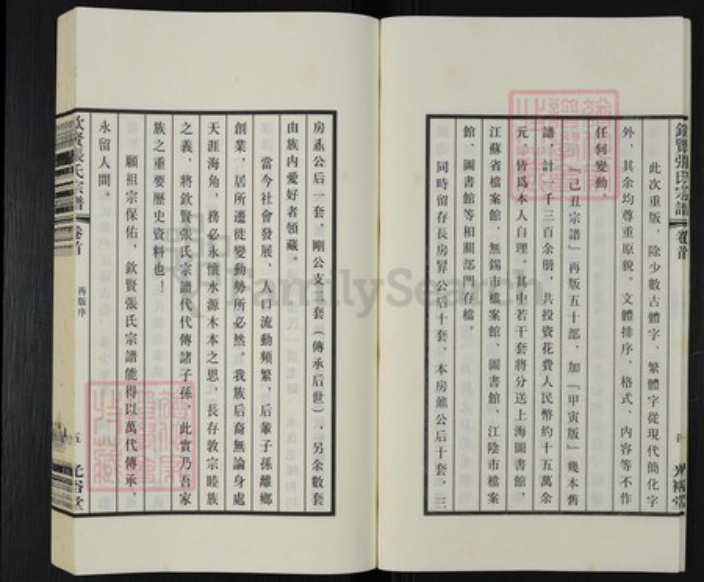 此次重版，除少數古體字、繁體字從現代簡化字
外，其余均尊重原貌。文體排序、格式、內容等不作
任何變動。
『己丑宗譜』再版五十部，加『甲寅版』幾本舊
譜，計一千三百余册，共投資花費人民幣約十五萬余
元，皆爲本人自理。其中若干套將分送上海圖書館，
江蘇省檔案館、無錫市檔案館、圖書館、江陰市檔案
館、圖書館等相關部門存檔。
同時留存長房昇公后十套，本房公后十套，三
房公后一套，剛公支一套（傳承后世），另余數套
由族内愛好者領藏。
當今社會發展，人口流動頻繁，后輩子孫離鄉
創業，居所遷徙變動勢所必然。我族后裔無論身處
天涯海角，務必永懷水源木本之思，長存敦宗睦族
之義，將欽賢張氏宗譜代代傳諸子孫，此實乃吾家
族之重要歷史資料也！
願祖宗保佑，欽賢張氏宗譜能得以萬代傳承，
永留人間。
欽賢張氏宗譜 卷首
再版序
五
光裕堂
FamilySearch